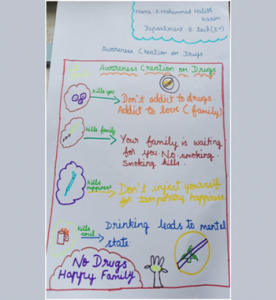 Name: A Mohammed Halith
Nasim
Department: B.tech(IT)
Awareness Creation on Drugs
Awareness Creation on Drugs
kills you
Don't addict to drugs
Addict to love (family)
kills family
Your family is waiting
for you. No smoking.
Smoking kills.
kills happiness
Don't inject yourself
for temporary happiness
kills soul
Drinking leads to mental
state
No Drugs
Happy Family